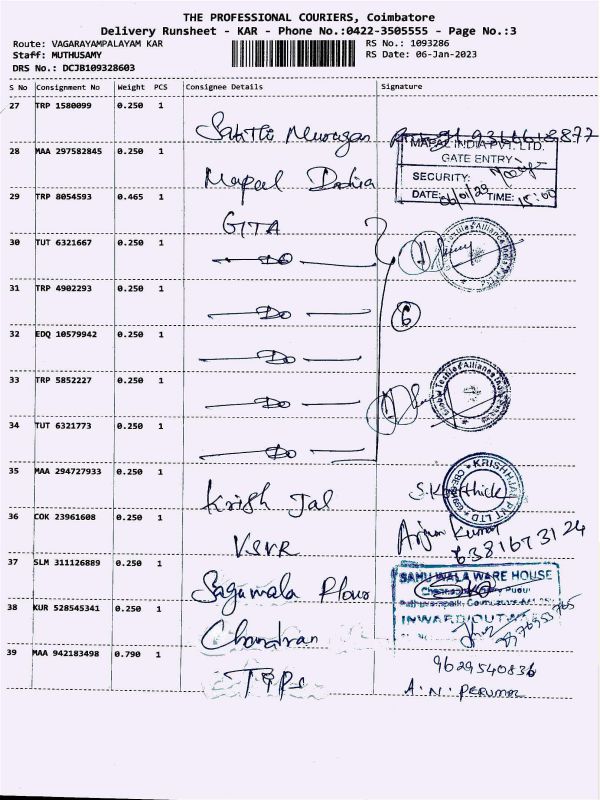 THE PROFESSIONAL COURIERS, Coimbatore
Delivery Runsheet - KAR - Phone No.:0422-3505555 - Page No.:3
Route: VAGARAYAMPALAYAM KAR
RS No.: 1093286
Staff: MUTHUSAMY
RS Date: 06-Jan-2023
DRS No.: DCJB109328603
S No Consignment No Weight PCS Consignee Details Signature
27 TRP 1580099 0.250 1
Sakthi Murugan
28 MAA 297582845 0.250 1
MAPAL INDIA PVT. LTD.
GATE ENTRY
SECURITY:
DATE: 06/01/23 TIME: 15:00
Mapal India
29 TRP 8054593 0.465 1
GITA
30 TUT 6321667 0.250 1
Do
31 TRP 4902293 0.250 1
Do
6
32 EDQ 10579942 0.250 1
Do
33 TRP 5852227 0.250 1
Do
34 TUT 6321773 0.250 1
Do
35 MAA 294727933 0.250 1
Krish Jal
S.Karthick
36 COK 23961608 0.250 1
VSVR
Arjun Kumar
6381673124
37 SLM 311126889 0.250 1
SAHUWALA WARE HOUSE
INWARD/OUTWARD
38 KUR 528545341 0.250 1
Chandran
39 MAA 942183498 0.790 1
9629540836
A.N. PERUMAL